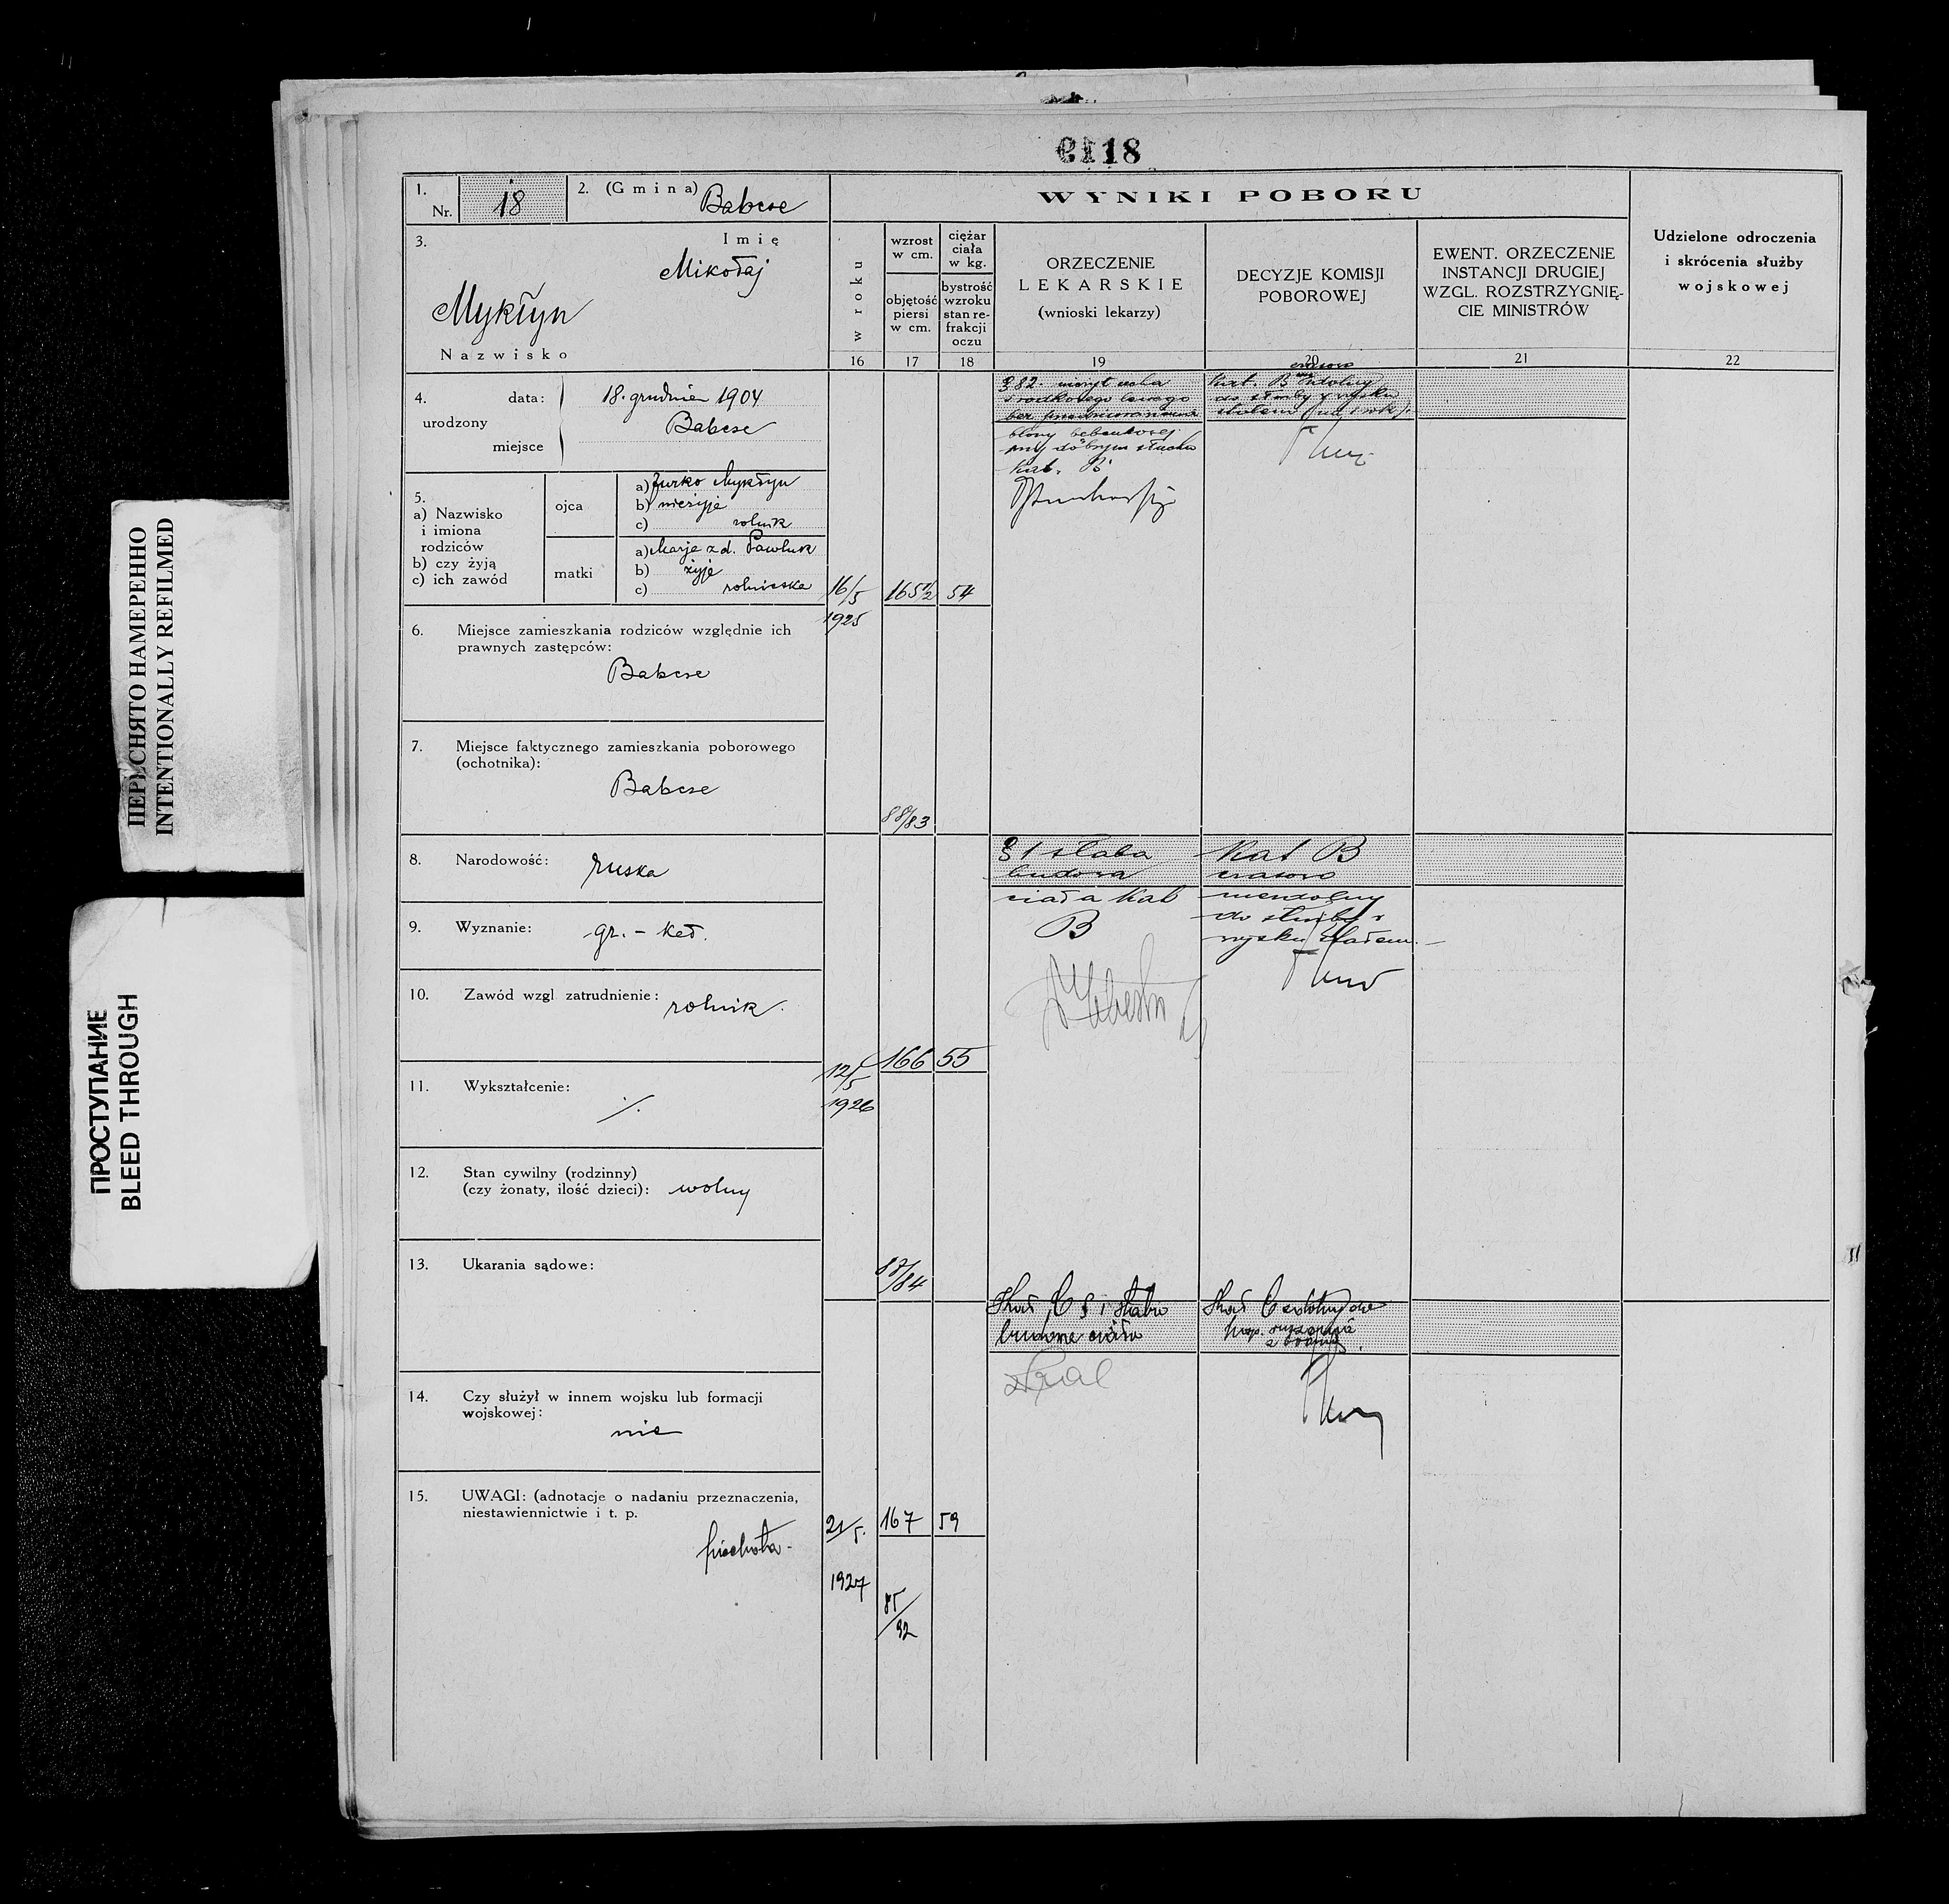 118
1.
Nr. 18
2. (Gmina) Babcze
WYNIKI POBORU
Udzielone odroczenia
i skrócenia służby
wojskowej
3.
Imię
Mikołaj
Mykłyn
Nazwisko
w roku
wzrost
w cm.
objętość
piersi
w cm.
ciężar
ciała
w kg.
bystrość
wzroku
stan re-
frakcji
oczu
ORZECZENIE
LEKARSKIE
(wnioski lekarzy)
DECYZJE KOMISJI
POBOROWEJ
EWENT. ORZECZENIE
INSTANCJI DRUGIEJ
WZGL. ROZSTRZYGNIĘ-
CIE MINISTRÓW
16 17 18 19 20 21 22
4. data: 18. grudnia 1904
urodzony
miejsce Babcze
5.
a) Nazwisko
i imiona
rodziców
b) czy żyją
c) ich zawód
ojca
a) Jurko Mykłyn
b) nieżyje
c) rolnik
matki
a) Marja z d. Pawluk
b) żyje
c) rolniczka
16/5
1925
165½ 54
88/83
§ 82.
środkowego lewego
bez
błony bębenkowej
przy dobrym słuchu
kat. B
czasowo
Kat. B niezdolny
do służby w wojsku
stałem (na rok).
6. Miejsce zamieszkania rodziców względnie ich
prawnych zastępców:
Babcze
7. Miejsce faktycznego zamieszkania poborowego
(ochotnika):
Babcze
8. Narodowość: ruska
9. Wyznanie: gr.-kat.
10. Zawód wzgl. zatrudnienie: rolnik.
11. Wykształcenie:
./.
12/5
1926
166 55
/84
§ 1 słaba
budowa
ciała Kat
B
Kat B
czasowo
niezdolny
do służby w
wojsku stałem.
12. Stan cywilny (rodzinny)
(czy żonaty, ilość dzieci): wolny
13. Ukarania sądowe:
14. Czy służył w innem wojsku lub formacji
wojskowej:
nie
15. UWAGI: (adnotacje o nadaniu przeznaczenia,
niestawiennictwie i t. p.
piechota.
21/5.
1927
167 59
85/92
Kat C § 1 słaba
budowa ciała
Kat C zdolny do
posp. ruszenia
z bronią.
ПЕРЕСНЯТО НАМЕРЕННО
INTENTIONALLY REFILMED
ПРОСТУПАНИЕ
BLEED THROUGH